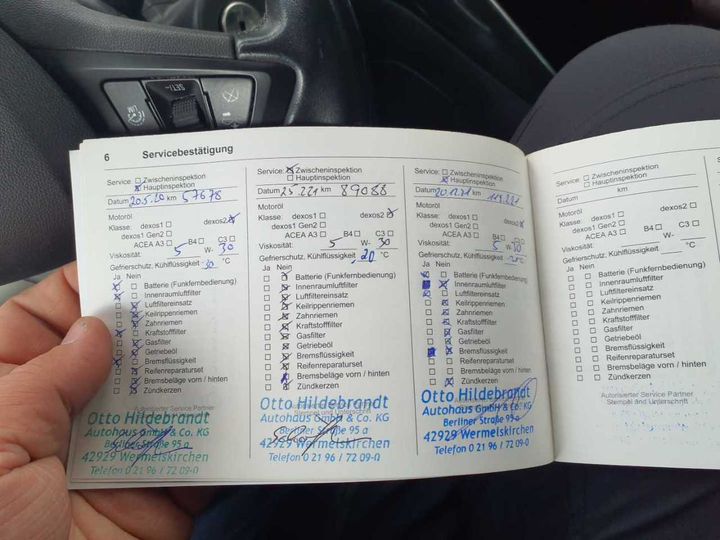 6 Servicebestätigung
Service: Zwischeninspektion
Hauptinspektion
Datum 20.5.20 km 57678
Motoröl
Klasse: dexos1 dexos2
dexos1 Gen2
ACEA A3 B4 C3
Viskosität: 5 W- 30
Gefrierschutz, Kühlflüssigkeit -30 °C
Ja Nein
Batterie (Funkfernbedienung)
Innenraumluftfilter
Luftfiltereinsatz
Keilrippenriemen
Zahnriemen
Kraftstofffilter
Gasfilter
Getriebeöl
Bremsflüssigkeit
Reifenreparaturset
Bremsbeläge vorn / hinten
Zündkerzen
Autorisierter Service Partner
Otto Hildebrandt
Autohaus GmbH & Co. KG
Berliner Straße 95 a
42929 Wermelskirchen
Telefon 0 21 96 / 72 09-0
Service: Zwischeninspektion
Hauptinspektion
Datum 25.2.21 km 89088
Motoröl
Klasse: dexos1 dexos2
dexos1 Gen2
ACEA A3 B4 C3
Viskosität: 5 W- 30
Gefrierschutz, Kühlflüssigkeit -20 °C
Ja Nein
Batterie (Funkfernbedienung)
Innenraumluftfilter
Luftfiltereinsatz
Keilrippenriemen
Zahnriemen
Kraftstofffilter
Gasfilter
Getriebeöl
Bremsflüssigkeit
Reifenreparaturset
Bremsbeläge vorn / hinten
Zündkerzen
Otto Hildebrandt
Autohaus GmbH & Co. KG
Berliner Straße 95 a
42929 Wermelskirchen
Telefon 0 21 96 / 72 09-0
Service: Zwischeninspektion
Hauptinspektion
Datum km
Motoröl
Klasse: dexos1 dexos2
dexos1 Gen2
ACEA A3 B4 C3
Viskosität: 5 W- 30
Gefrierschutz, Kühlflüssigkeit °C
Ja Nein
Batterie (Funkfernbedienung)
Innenraumluftfilter
Luftfiltereinsatz
Keilrippenriemen
Zahnriemen
Kraftstofffilter
Gasfilter
Getriebeöl
Bremsflüssigkeit
Reifenreparaturset
Bremsbeläge vorn / hinten
Zündkerzen
Otto Hildebrandt
Autohaus GmbH & Co. KG
Berliner Straße 95 a
42929 Wermelskirchen
Telefon 0 21 96 / 72 09-0
Service: Zwischeninspektion
Hauptinspektion
Datum km
Motoröl
Klasse: dexos1 dexos2
dexos1 Gen2
ACEA A3 B4 C3
Viskosität: W-
Gefrierschutz, Kühlflüssigkeit °C
Ja Nein
Batterie (Funkfernbedienung)
Innenraumluftfilter
Luftfiltereinsatz
Keilrippenriemen
Zahnriemen
Kraftstofffilter
Gasfilter
Getriebeöl
Bremsflüssigkeit
Reifenreparaturset
Bremsbeläge vorn / hinten
Zündkerzen
Autorisierter Service Partner
Stempel und Unterschrift
SET/-
LIM